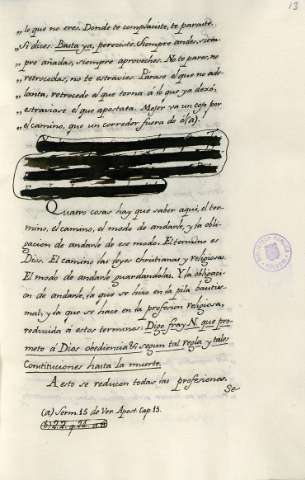 13
„ lo que no eres. Donde te complaciste, te paraste.
„ Si dizes: Basta ya, pereciste. Siempre andes, siem-
„ pre añadas, siempre aproveches. No te pares, no
„ retrocedas, no te estravies. Párase el que no ade-
„ lanta, retrocede el que torna á lo que ya dexó,
„ estraviase el que apostata. Mejor va un cojo por
„ el camino, que un corredor fuera de él (a).
Quatro cosas hay que saber aqui, el ter-
mino, el camino, el modo de andarle, y la obli-
gacion de andarle de ese modo. El termino es
Dios. El camino las leyes christianas y religiosas.
El modo de andarle guardandolas. Y la obligaci-
on de andarle, la que se hace en la pila bautis-
mal, y la que se hace en la profesion religiosa,
reducida á estos terminos: Digo fray N. que pro-
meto á Dios obediencia &c. segun tal regla, y tales
Constituciones hasta la muerte.
A esto se reducen todas las profesiones.
Se
(a) Serm. 15 de Ver. Apost. Cap. 15.